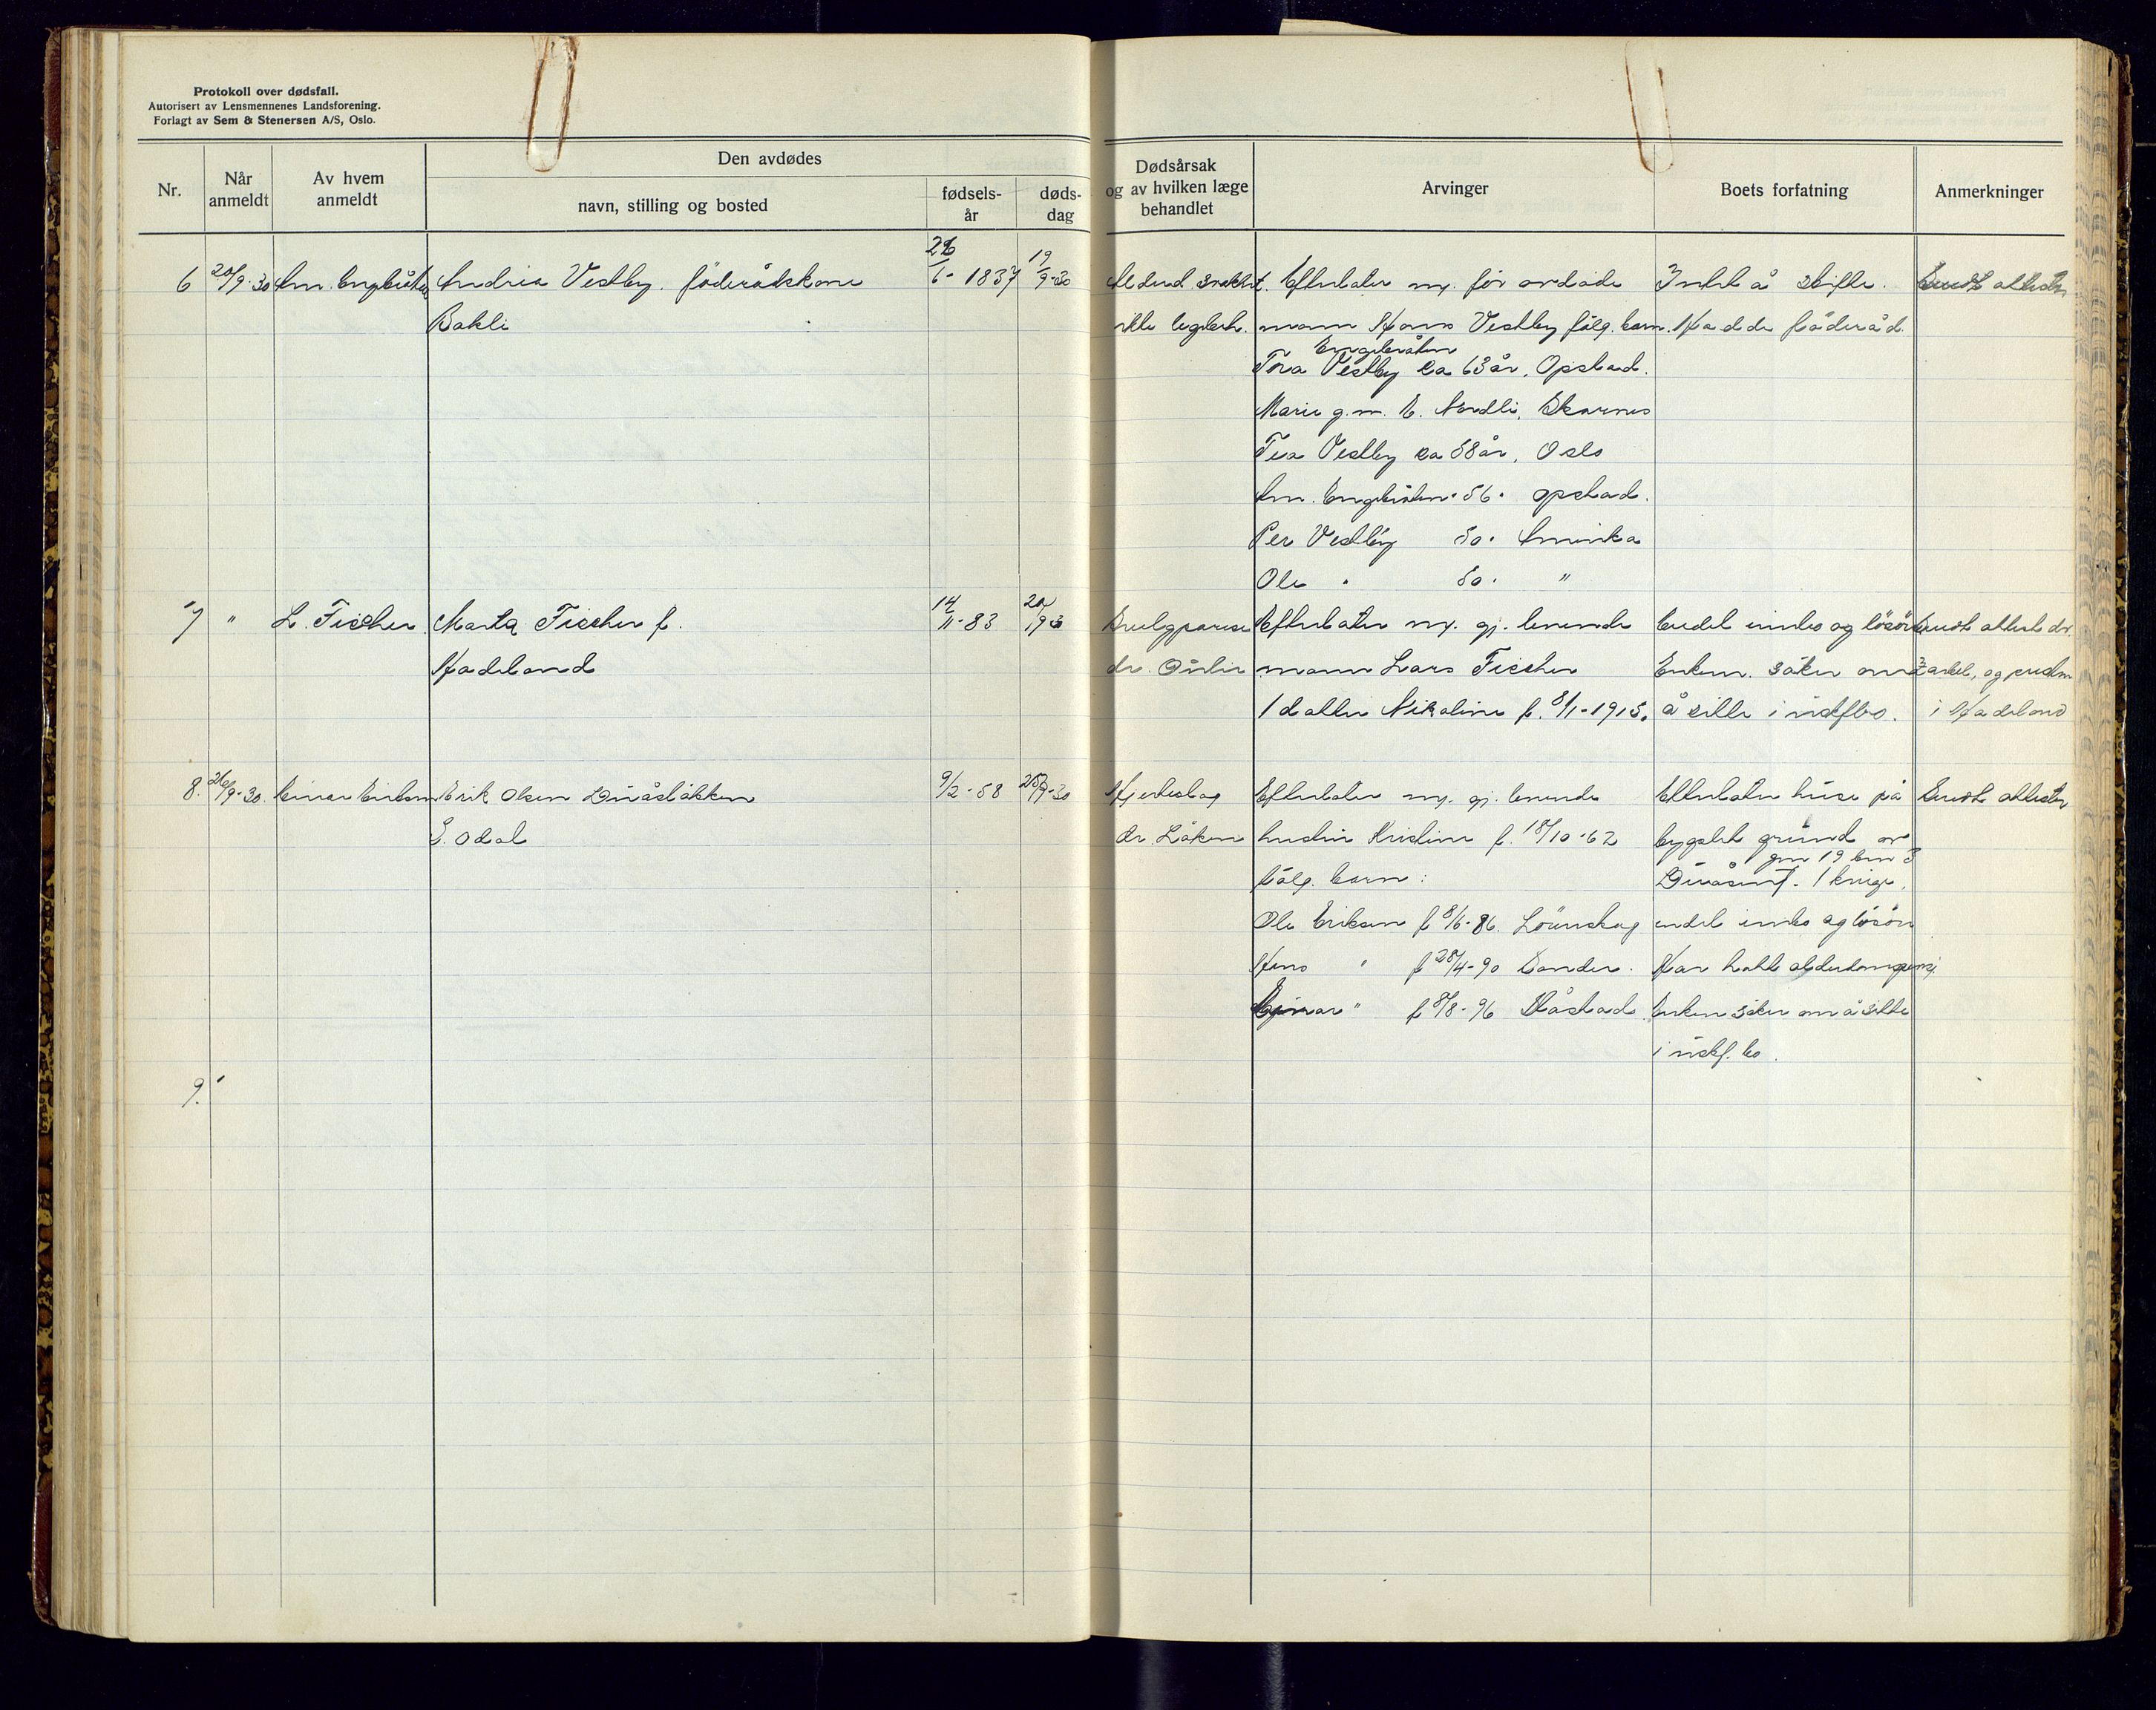 Protokoll over dødsfall.
Autorisert av Lensmennenes Landsforening.
Forlagt av Sem & Stenersen A/S, Oslo.
Nr.
Når anmeldt
Av hvem anmeldt
Den avdødes
navn, stilling og bosted
fødsels-
år
døds-
dag
Dødsårsak
og av hvilken læge
behandlet
Arvinger
Boets forfatning
Anmerkninger
6 20/9-30 Am. Engebråten Andrea Vestby. föderådskone
6-1837 19/9-30
Bakli
Alderd. svakhet
ikke legebeh.
Efterlater sig. før avdöde
mann Hans Vestby følg. barn.
Engebråten
Tora Vestby ca 63 år, Opstad.
Marie g.m. E. Nordli, Skarnes
Tea Vestby ca 58 år, Oslo
Am. Engebråten " 56 " Opstad.
Per Vestby 50 " Amerika
Ole " 50 " "
Intet å skifte.
Hadde föderåd.
Sendt attester
7 " L. Fischer Marta Fischer f.
14/11-83
Hadeland
dr.
Efterlater sig. gj. levende
mann Lars Fischer
1 datter Nikoline f. 8/1-1915.
Endel innbo og lösöre
Enkem. söker om
å sitte i uskiftbo.
Sendt attest dr.
i Hadeland
8. 26/9-30. Einar Eriksen Erik Olsen
9/2-58 25/9-30
S. Odal
Hjerteslag
dr. Löken
Efterlater sig. gj. levende
hustru Kristine f. 18/10-62
følg. barn:
Ole Eriksen f 8/6-86. Lörenskog
Hans " f 28/4-90 Sander.
Einar " f 8/8-96 Slåstad
Efterlater huse på
bygslet grund av
gnr 19 bnr 3
1 kvige,
endel innbo og lösöre
Har hatt alderdomspensj.
Enken söker om å sitte
i uskf. bo.
Sendt attester
9.